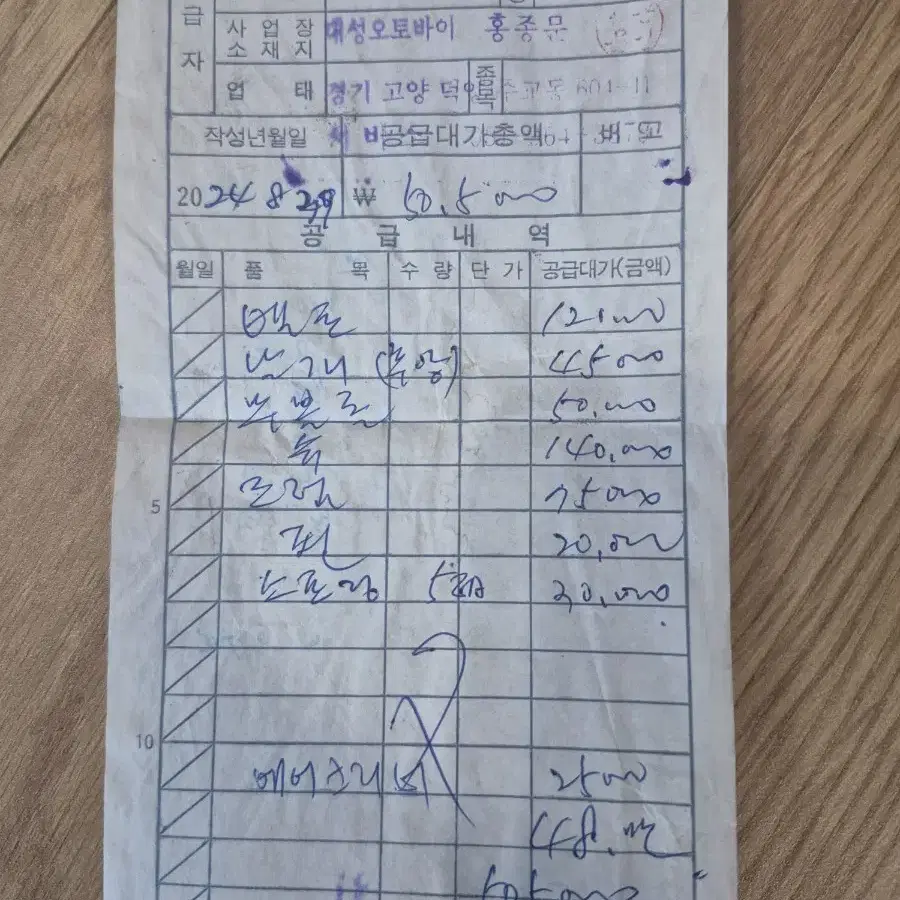 급
자
사업장
소재지
대성오토바이 홍종문
업 태
종
목
경기 고양 덕양 주교동 601-11
작성년월일 공급대가총액 비고
2024 8 29 ₩ 50,5000
공 급 내 역
월일 품 목 수량 단가 공급대가(금액)
벨트 121000
날개 (중앙) 45000
무브볼 50,000
140,000
드럼 75000
핀 20,000
스프링 5개 30,000
5
10
에어크리너 25000
48만
505000